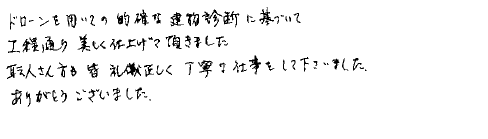 ドローンを用いての的確な建物診断に基づいて
工程通り美しく仕上げて頂きました
職人さん方も皆礼儀正しく丁寧な仕事をして下さいました.
ありがとうございました.